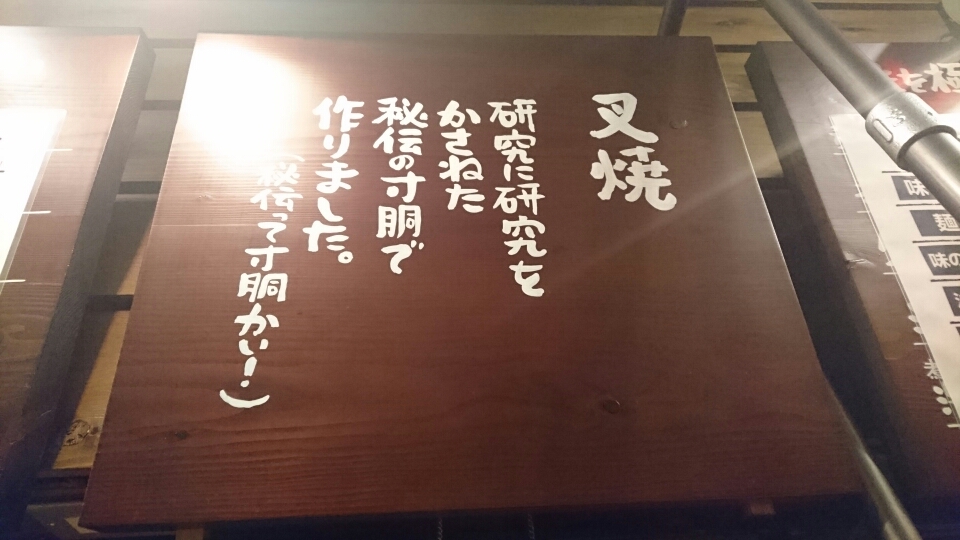 叉焼
研究に研究を
かさねた
秘伝の寸胴で
作りました。
(秘伝って寸胴かい!)
を極
味
麺
味の